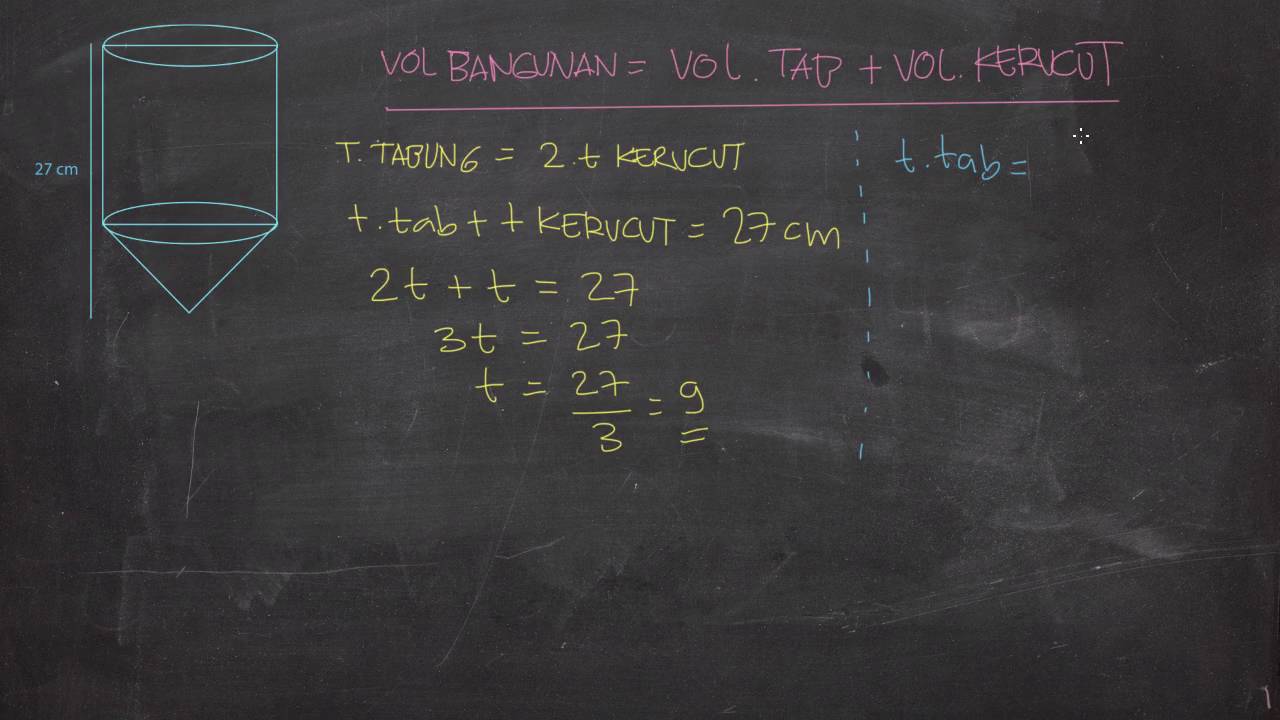 VOL BANGUNAN = VOL. TAB + VOL. KERUCUT
27 cm
T. TABUNG = 2.t KERUCUT
t.tab + t KERUCUT = 27 cm
2t + t = 27
3t = 27
t = 27/3 = 9
t.tab =